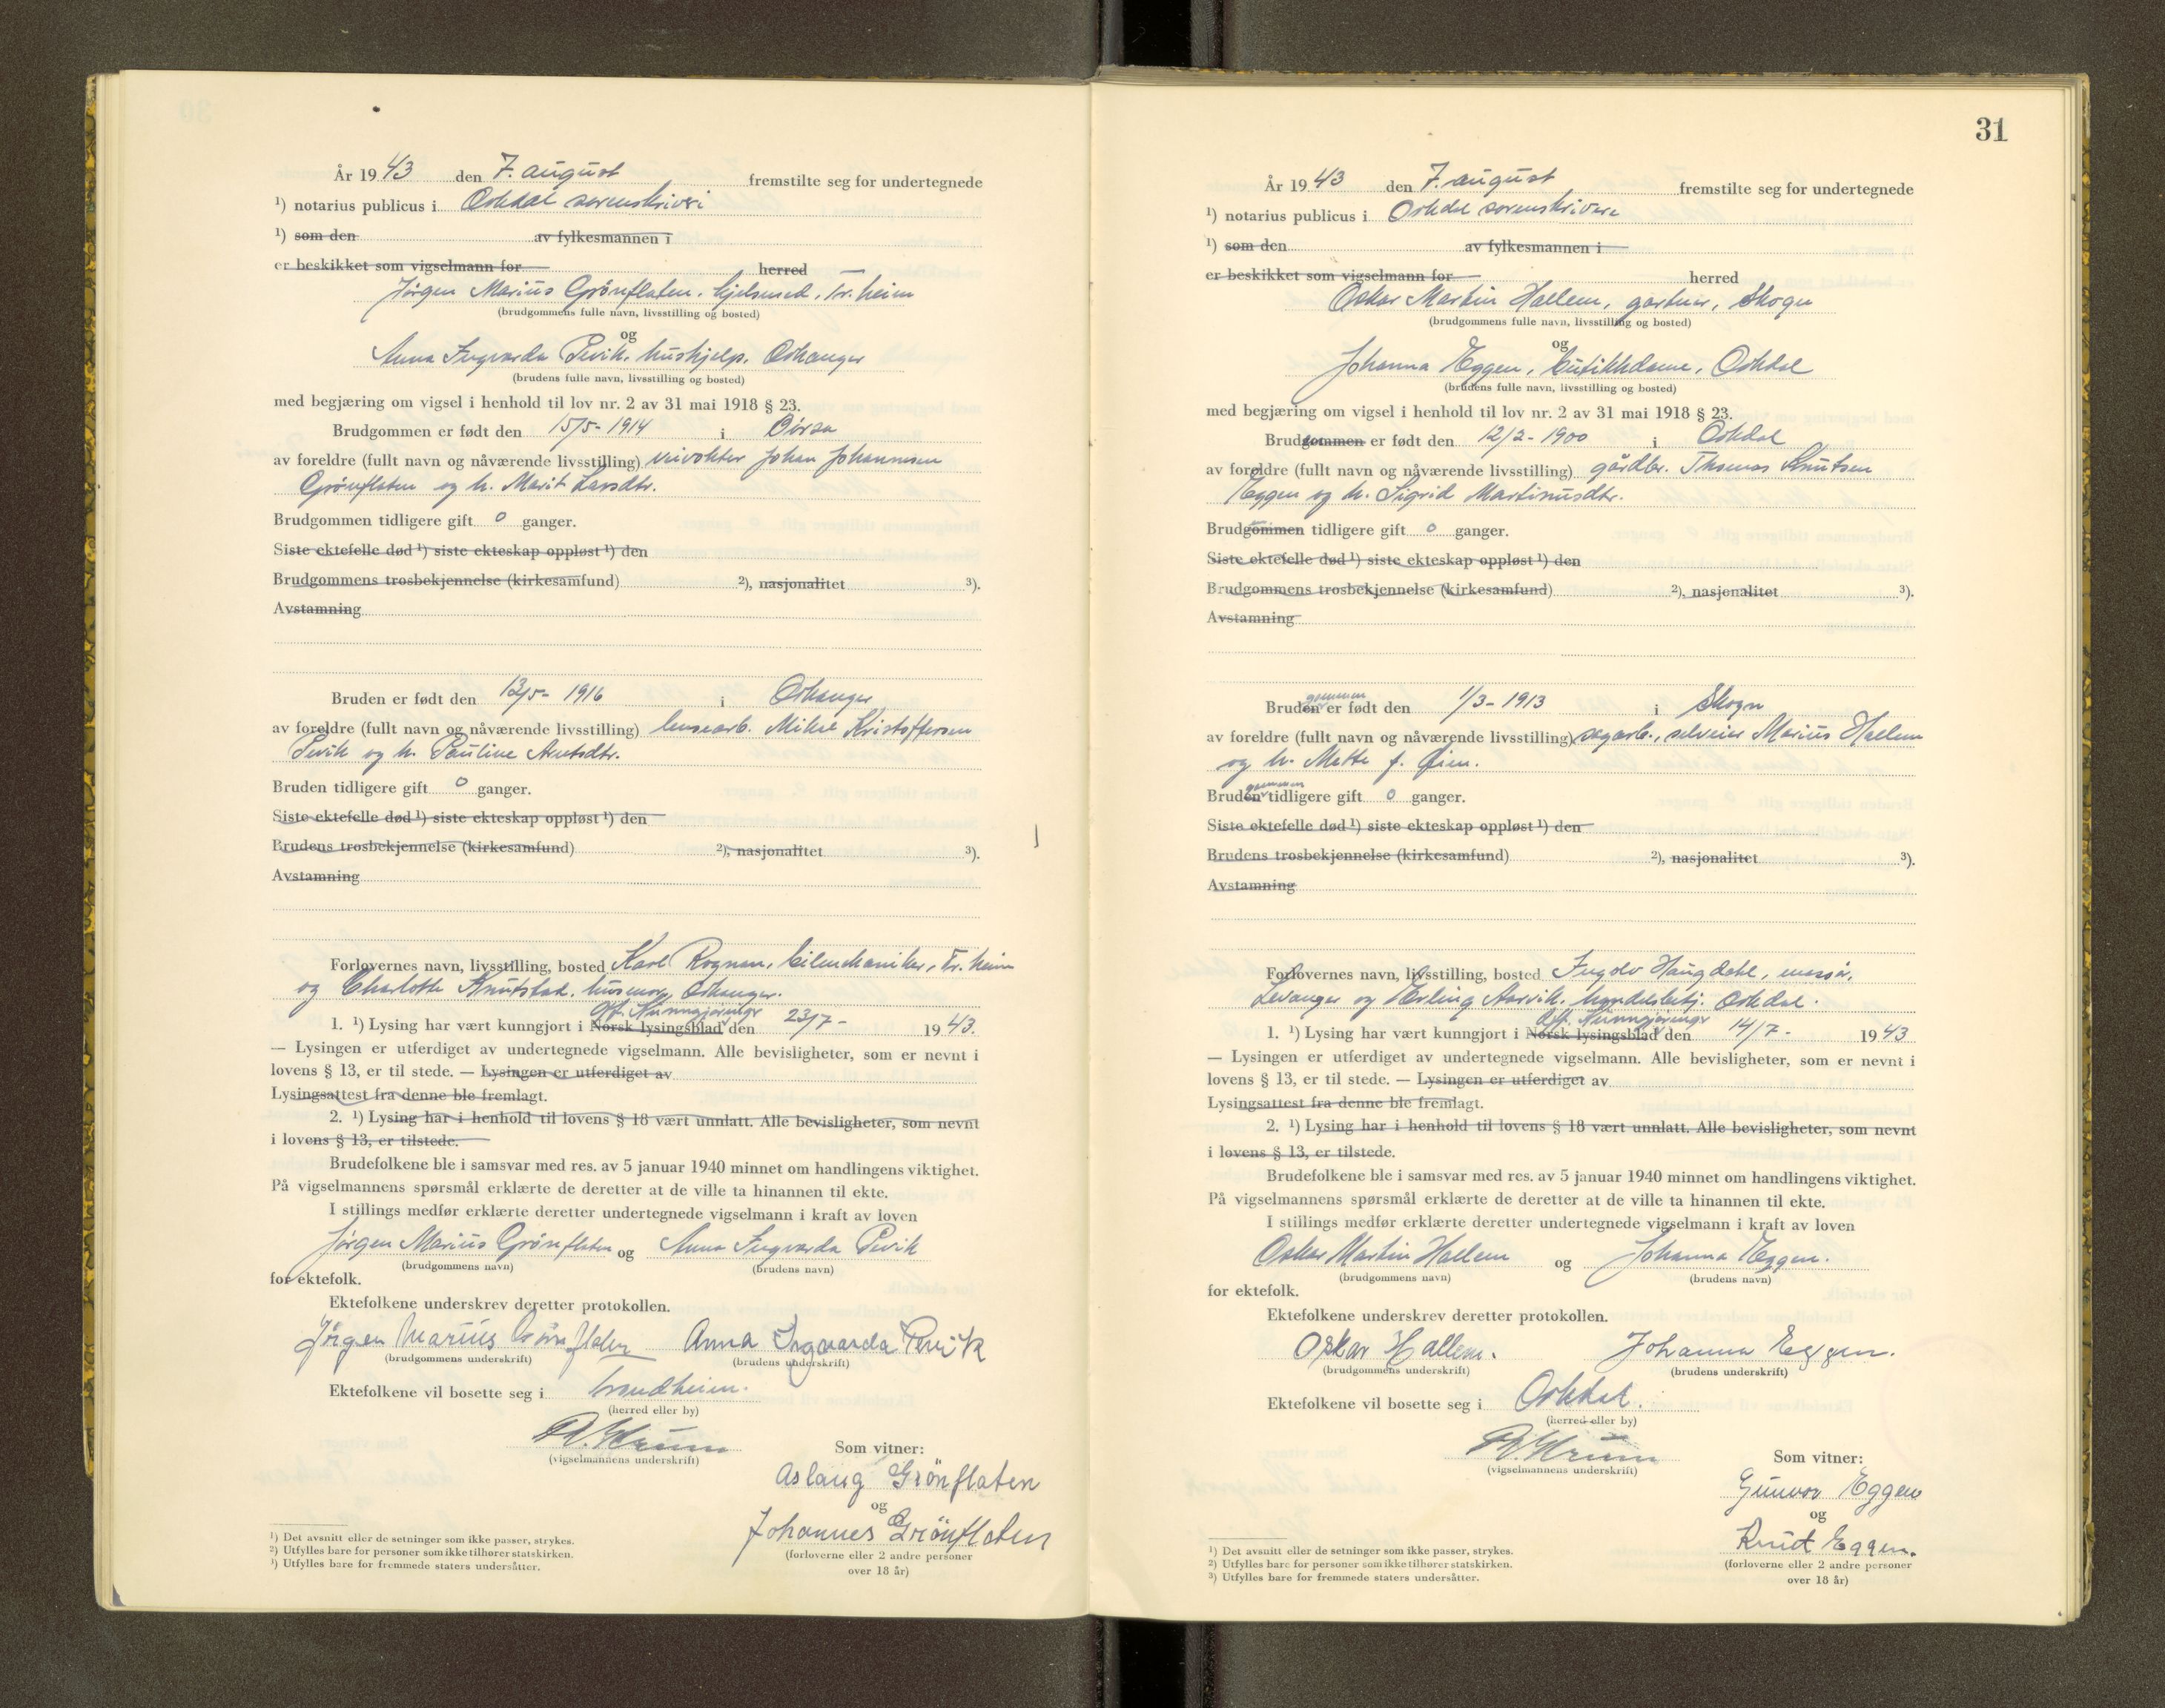 År 1943 den 7. august fremstilte seg for undertegnede
¹) notarius publicus i Orkdal sorenskriveri
¹) som den av fylkesmannen i
er beskikket som vigselmann for herred
Jörgen Marius Grönflaten, kjelsmed, Tr.heim
(brudgommens fulle navn, livsstilling og bosted)
og
Anna Ingvarda Pevik, hushjelp, Orkanger
(brudens fulle navn, livsstilling og bosted)
med begjæring om vigsel i henhold til lov nr. 2 av 31 mai 1918 § 23.
Brudgommen er født den 15/5-1914 i Börsa
av foreldre (fullt navn og nåværende livsstilling) veivokter Johan Johannesen
Grönflaten og h. Marit Larsdtr.
Brudgommen tidligere gift 0 ganger.
Siste ektefelle død ¹) siste ekteskap oppløst ¹) den
Brudgommens trosbekjennelse (kirkesamfund) ²), nasjonalitet ³).
Avstamning
Bruden er født den 13/5-1916 i Orkanger
av foreldre (fullt navn og nåværende livsstilling) Mikal Kristoffersen
Pevik og h. Pauline Arntsdtr.
Bruden tidligere gift 0 ganger.
Siste ektefelle død ¹) siste ekteskap oppløst ¹) den
Brudens trosbekjennelse (kirkesamfund) ²), nasjonalitet ³).
Avstamning
Forlovernes navn, livsstilling, bosted Karl Rognen, bilmekaniker, Tr.heim
og Charlotte Knutstad, husmor, Orkanger.
Off. Kunngjøringer
1. ¹) Lysing har vært kunngjort i Norsk lysingsblad den 23/7- 1943.
— Lysingen er utferdiget av undertegnede vigselmann. Alle bevisligheter, som er nevnt i
lovens § 13, er til stede. — Lysingen er utferdiget av
Lysingsattest fra denne ble fremlagt.
2. ¹) Lysing har i henhold til lovens § 18 vært unnlatt. Alle bevisligheter, som nevnt
i lovens § 13, er tilstede.
Brudefolkene ble i samsvar med res. av 5 januar 1940 minnet om handlingens viktighet.
På vigselmannens spørsmål erklærte de deretter at de ville ta hinannen til ekte.
I stillings medfør erklærte deretter undertegnede vigselmann i kraft av loven
Jörgen Marius Grönflaten og Anna Ingvarda Pevik
(brudgommens navn) (brudens navn)
for ektefolk.
Ektefolkene underskrev deretter protokollen.
Jörgen Marius Grönflaten Anna Ingvarda Pevik
(brudgommens underskrift) (brudens underskrift)
Ektefolkene vil bosette seg i Trondheim.
(herred eller by)
(vigselmannens underskrift)
Som vitner:
Aslaug Grönflaten
og
Johannes Grönflaten
(forloverne eller 2 andre personer
over 18 år)
¹) Det avsnitt eller de setninger som ikke passer, strykes.
²) Utfylles bare for personer som ikke tilhører statskirken.
³) Utfylles bare for fremmede staters undersåtter.
31
År 1943 den 7. august, fremstilte seg for undertegnede
¹) notarius publicus i Orkdal sorenskriveri
¹) som den av fylkesmannen i
er beskikket som vigselmann for herred
Oskar Martin Hallem, gartner, Skogn
(brudgommens fulle navn, livsstilling og bosted)
og
Johanna Eggen, butikkdame, Orkdal
(brudens fulle navn, livsstilling og bosted)
med begjæring om vigsel i henhold til lov nr. 2 av 31 mai 1918 § 23.
Brudgommen er født den 12/2-1900 i Orkdal
av foreldre (fullt navn og nåværende livsstilling) gårdbr. Thomas Knutsen
Eggen og h. Sigrid Martinusdtr.
Brudgommen tidligere gift 0 ganger.
Siste ektefelle død ¹) siste ekteskap oppløst ¹) den
Brudgommens trosbekjennelse (kirkesamfund) ²), nasjonalitet ³).
Avstamning
gommen
Bruden er født den 1/3-1913 i Skogn
av foreldre (fullt navn og nåværende livsstilling) sagarb., selveier Marius Hallem
og h. Mette f. Øien.
gommen
Bruden tidligere gift 0 ganger.
Siste ektefelle død ¹) siste ekteskap oppløst ¹) den
Brudens trosbekjennelse (kirkesamfund) ²), nasjonalitet ³).
Avstamning
Forlovernes navn, livsstilling, bosted Ingolv Haugdahl, massör,
Levanger og Erling Aarvik, handelsbetj. Orkdal.
Off. Kunngjøringer
1. ¹) Lysing har vært kunngjort i Norsk lysingsblad den 14/7- 1943
— Lysingen er utferdiget av undertegnede vigselmann. Alle bevisligheter, som er nevnt i
lovens § 13, er til stede. — Lysingen er utferdiget av
Lysingsattest fra denne ble fremlagt.
2. ¹) Lysing har i henhold til lovens § 18 vært unnlatt. Alle bevisligheter, som nevnt
i lovens § 13, er tilstede.
Brudefolkene ble i samsvar med res. av 5 januar 1940 minnet om handlingens viktighet.
På vigselmannens spørsmål erklærte de deretter at de ville ta hinannen til ekte.
I stillings medfør erklærte deretter undertegnede vigselmann i kraft av loven
Oskar Martin Hallem og Johanna Eggen.
(brudgommens navn) (brudens navn)
for ektefolk.
Ektefolkene underskrev deretter protokollen.
Oskar Hallem. Johanna Eggen.
(brudgommens underskrift) (brudens underskrift)
Ektefolkene vil bosette seg i Orkdal.
(herred eller by)
(vigselmannens underskrift)
Som vitner:
Gunvor Eggen
og
Knut Eggen.
(forloverne eller 2 andre personer
over 18 år)
¹) Det avsnitt eller de setninger som ikke passer, strykes.
²) Utfylles bare for personer som ikke tilhører statskirken.
³) Utfylles bare for fremmede staters undersåtter.